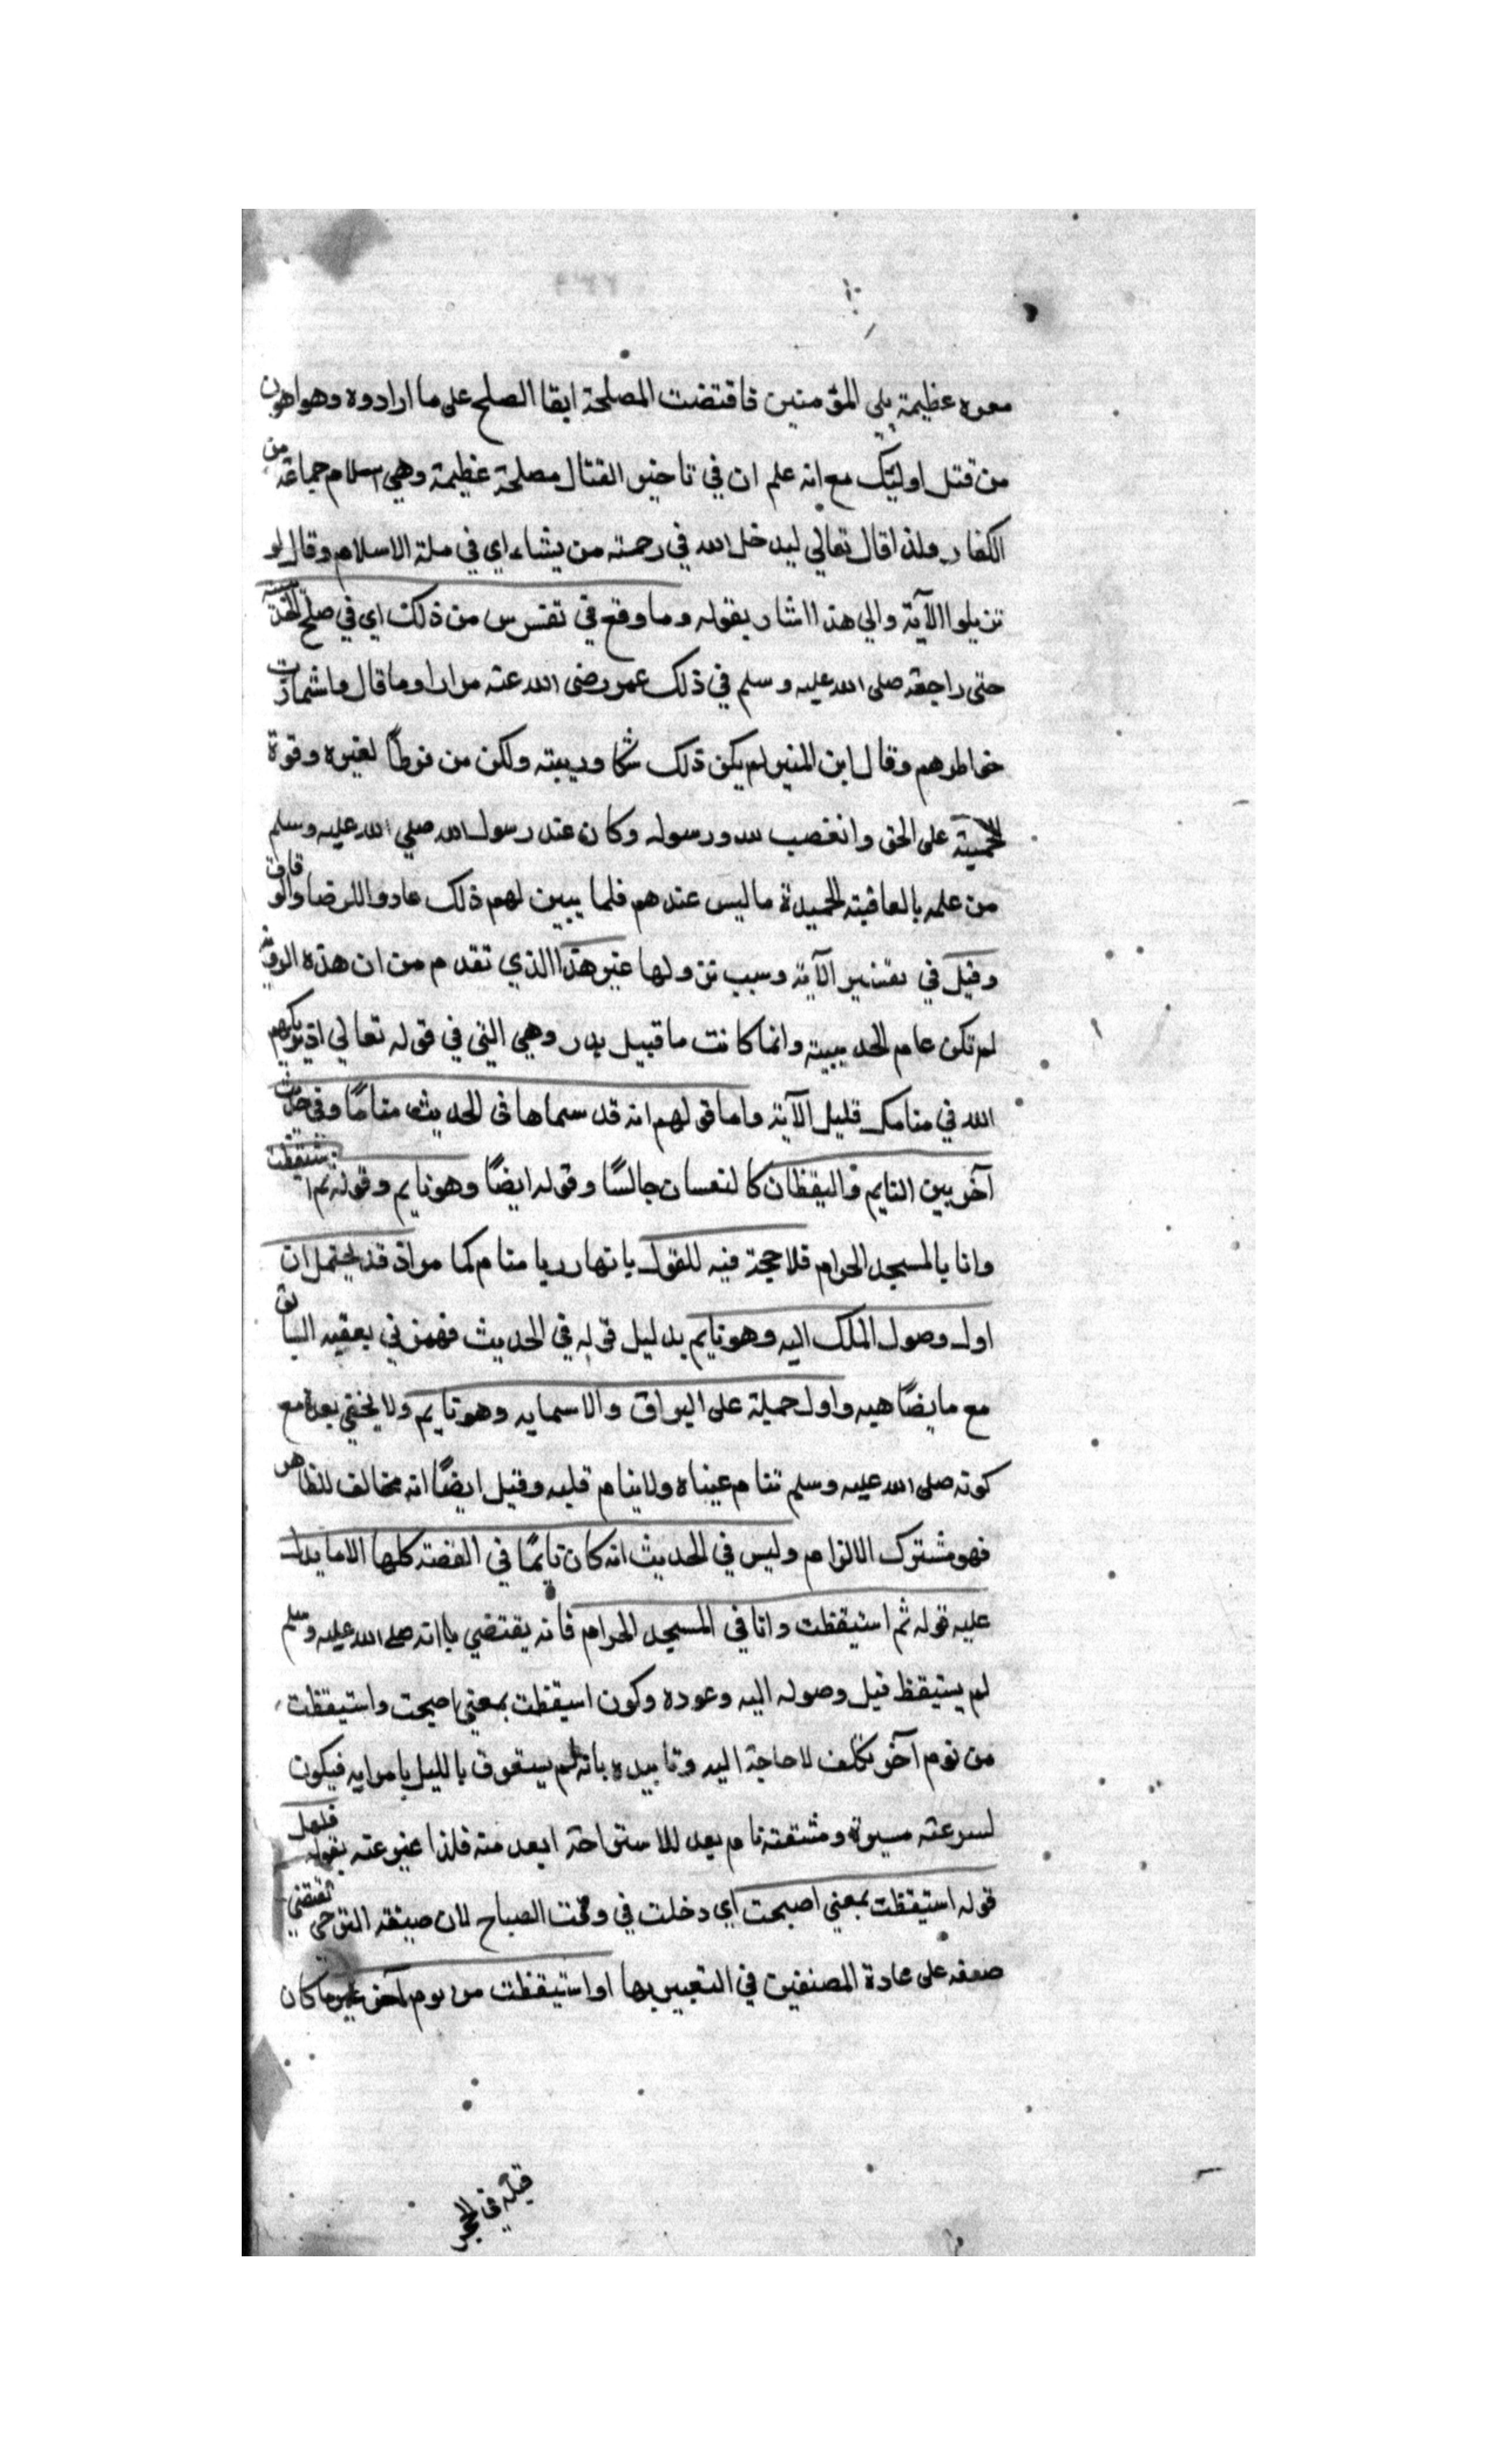 معره عظيمة يلي المؤمنين فاقتضت المصلحة ابقا الصلح على ما ارادوه وهو اهون
من قتل اوليك مع انه علم ان في تاخير القتال مصلحة عظيمة وهي اسلام جماعة من
الكفار ولذا قال تعالي ليدخل الله في رحمته من يشاء اي في ملة الاسلام وقال لو
تزيلوا الآية والي هذا اشار بقوله وما وقع في نفس من ذلك اي في صلح
حتى راجعه صلى الله عليه وسلم في ذلك عمر رضى الله عنه مرارا وما قال واشمازت
خواطرهم وقال ابن المنير لم يكن ذلك شكا وريبته ولكن من فرط لغيره وقوة
الحمية على الحق وانغصب لله ورسوله وكان عند رسول الله صلي الله عليه وسلم
من علمه بالعاقبته الحميدة ما ليس عندهم فلما يبين لهم ذلك عادوا للرضا والوفاق
وقيل في تفسير الآية وسبب نزولها غير هذا الذي تقدم من ان هذه الروية
لم تكن عام الحديبيته وانما كانت ما قبيل بدر وهي التي في قوله تعالي اذ يريكهم
الله في منامك قليل الآية واما قولهم انه قد سماها في الحديث مناما وفي حديث
آخر بين النايم واليقظان كالنعسان جالسا وقوله ايضا وهو نايم وقوله ثم استيقظت
وانا بالمسجد الحرام فلا حجة فيه للقول بانها رريا منام كما مر اذ قد يحتمل ان
اول وصول الملك اليه وهو نايم بدليل قوله في الحديث فهمزني بعقبه السابق
مع ما يضاهيه واول حمله على البراق والاسرايه وهو نايم ولا يخفي بعده مع
كونه صلى الله عليه وسلم تنام عيناه ولا ينام قلبه وقيل ايضا انه مخالف للظاهر
فهو مشترك الالزام وليس في الحديث انه كان نايما في القصته كلها الا ما يدل
عليه قوله ثم استيقظت وانا في المسجد الحرام فانه يقتضي بانه صلى الله عليه وسلم
لم يستيقظ قبل وصوله اليه وعوده وكون اسيقظت بمعني اصبحت واستيقظت
من نوم آخر تكلف لا حاجة اليه وتاييده بانه لم يستغرق بالليل فيكون
لسرعته مسيرة ومشقته نام بعد للاستراحة ابعد منه فلذا عبر عنه بقوله فلعل
قوله استيقظت بمعني اصبحت اي دخلت في وقت الصباح لان صيغه الترجي تقتضي
ضعفه على عادة المصنفين في التعبير بها او استيقظت من نوم آخر غير ما كان
قبله في الحجر